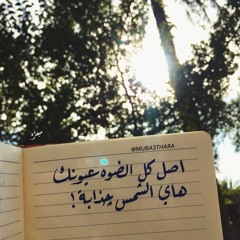 @MUBA3THARA
اصل كل الضوه عيونك
هاي الشمس چذابة !